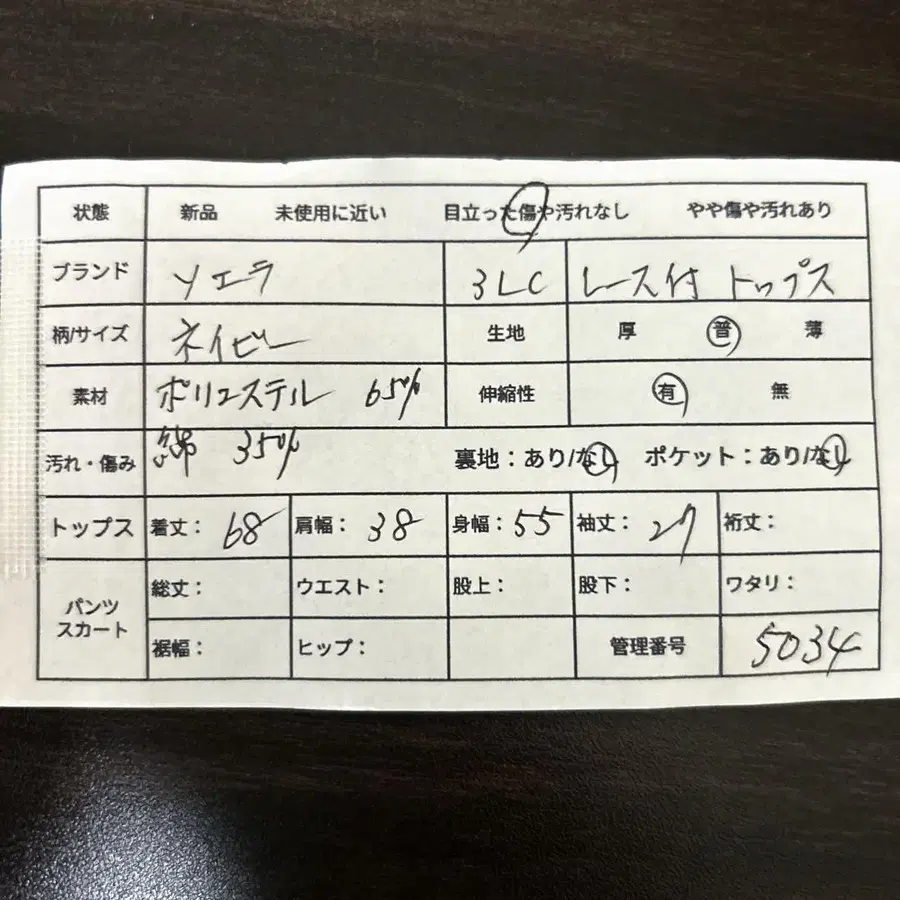 状態 新品 未使用に近い 目立った傷や汚れなし やや傷や汚れあり
ブランド ソエラ 3LC レース付 トップス
柄/サイズ ネイビー 生地 厚 普 薄
素材 ポリエステル 65% 伸縮性 有 無
汚れ・傷み 綿 35% 裏地：あり/なし ポケット：あり/なし
トップス 着丈： 68 肩幅： 38 身幅： 55 袖丈： 27 裄丈：
パンツ
スカート
総丈： ウエスト： 股上： 股下： ワタリ：
裾幅： ヒップ： 管理番号 5034